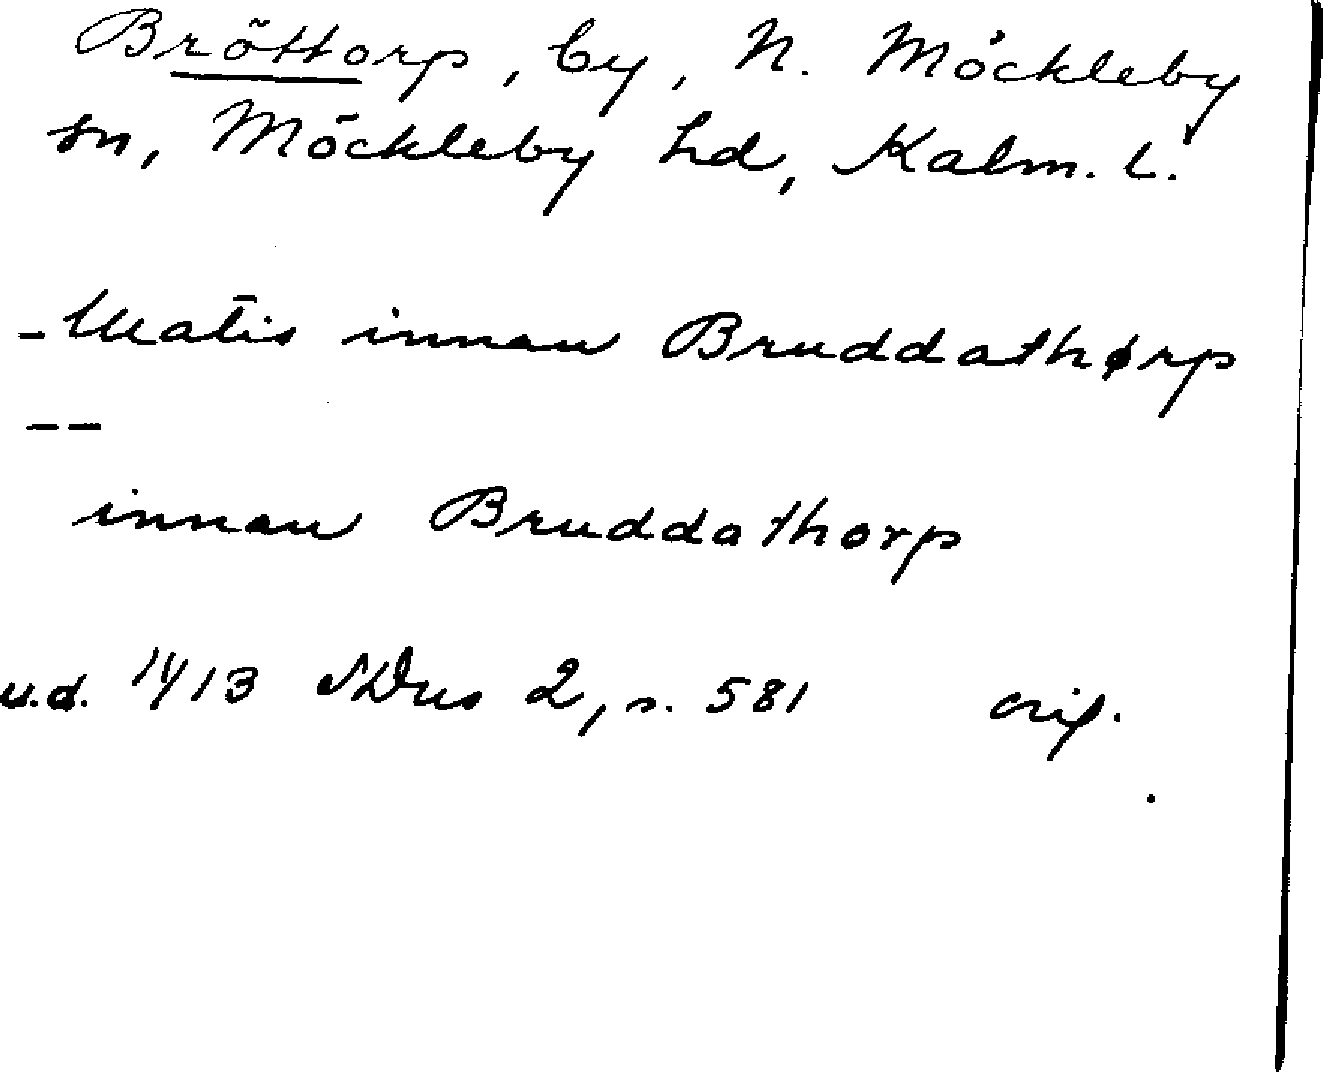 Bröttorp, by, N. Möckleby
sn, Möckleby hd, Kalm. l.
- Matis innan Bruddathørp
--
innan Bruddathorp
u.d. 1413 SDns 2, s. 581 orig.